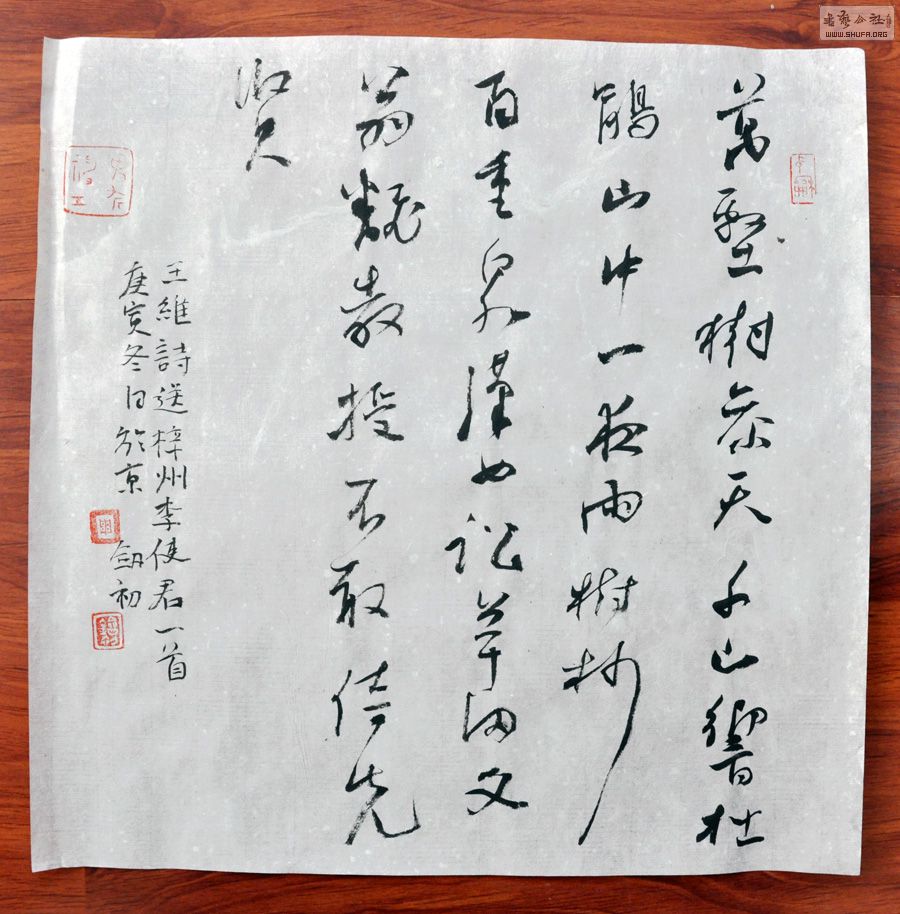 書藝公社
WWW.SHUFA.ORG
萬壑樹參天千山響杜
鵑山中一夜雨樹杪
百重泉漢女訟芋田文
翁翻教授不敢倚先
賢
王維詩送梓州李使君一首
庚寅冬日於京 初